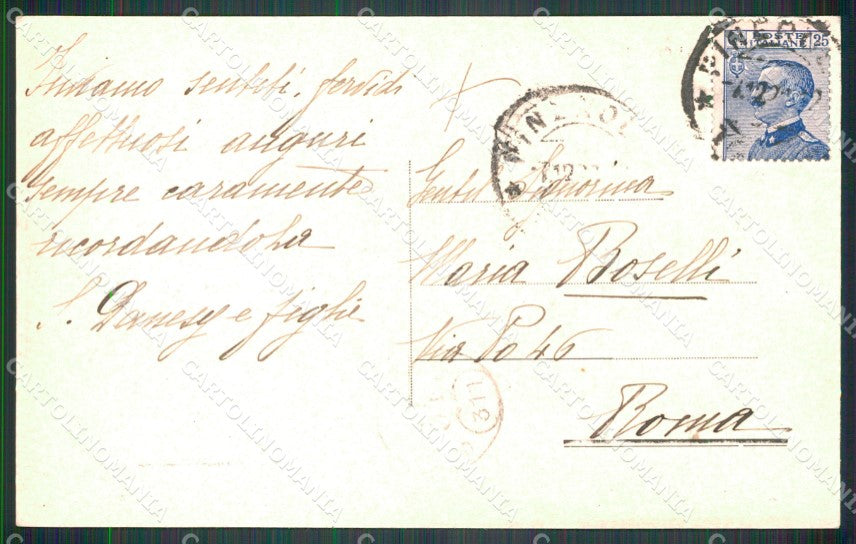 Inviamo sentiti, fervidi
affettuosi auguri
sempre caramente
ricordandola
S. Danesy e figlie
Gentil Signorina
Maria Boselli
Via Po 46
Roma
POSTE
ITALIANE 25
112
CARTOLINOMANIA